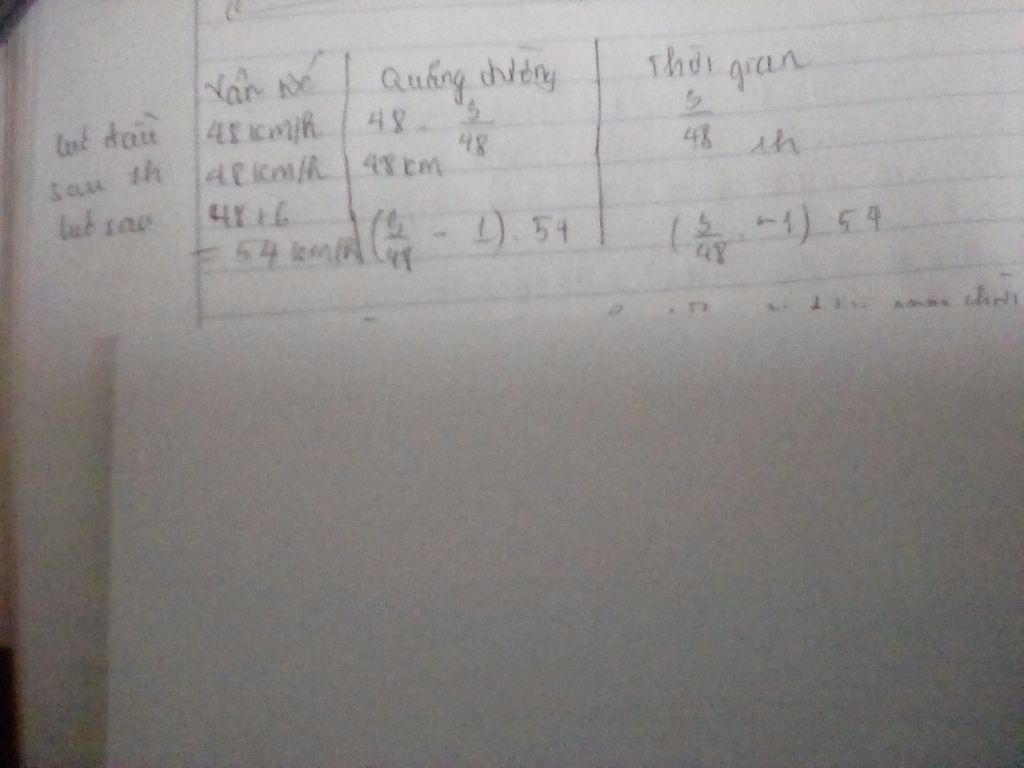 Vận tốc Quãng đường Thời gian
lúc đầu 48 km/h 48 . S/48 S/48
sau 1h 48 km/h 48 km 1h
lúc sau 48+6 = 54 km/h (S/48 - 1) . 54 (S/48 - 1) 54